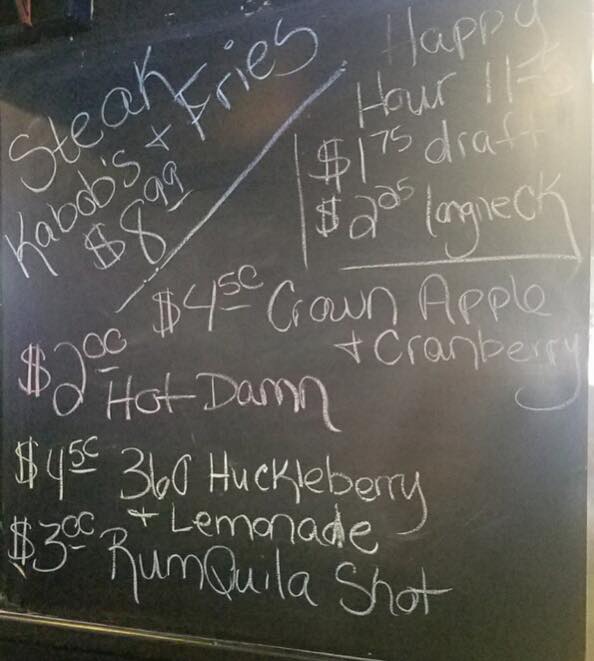 Steak
Kabob's + Fries
$8.99
Happy
Hour 11-5
$1.75 draft
$2.25 longneck
$4.50 Crown Apple
+ Cranberry
$2.00 Hot Damn
$4.50 360 Huckleberry
+ Lemonade
$3.00 RumQuila Shot